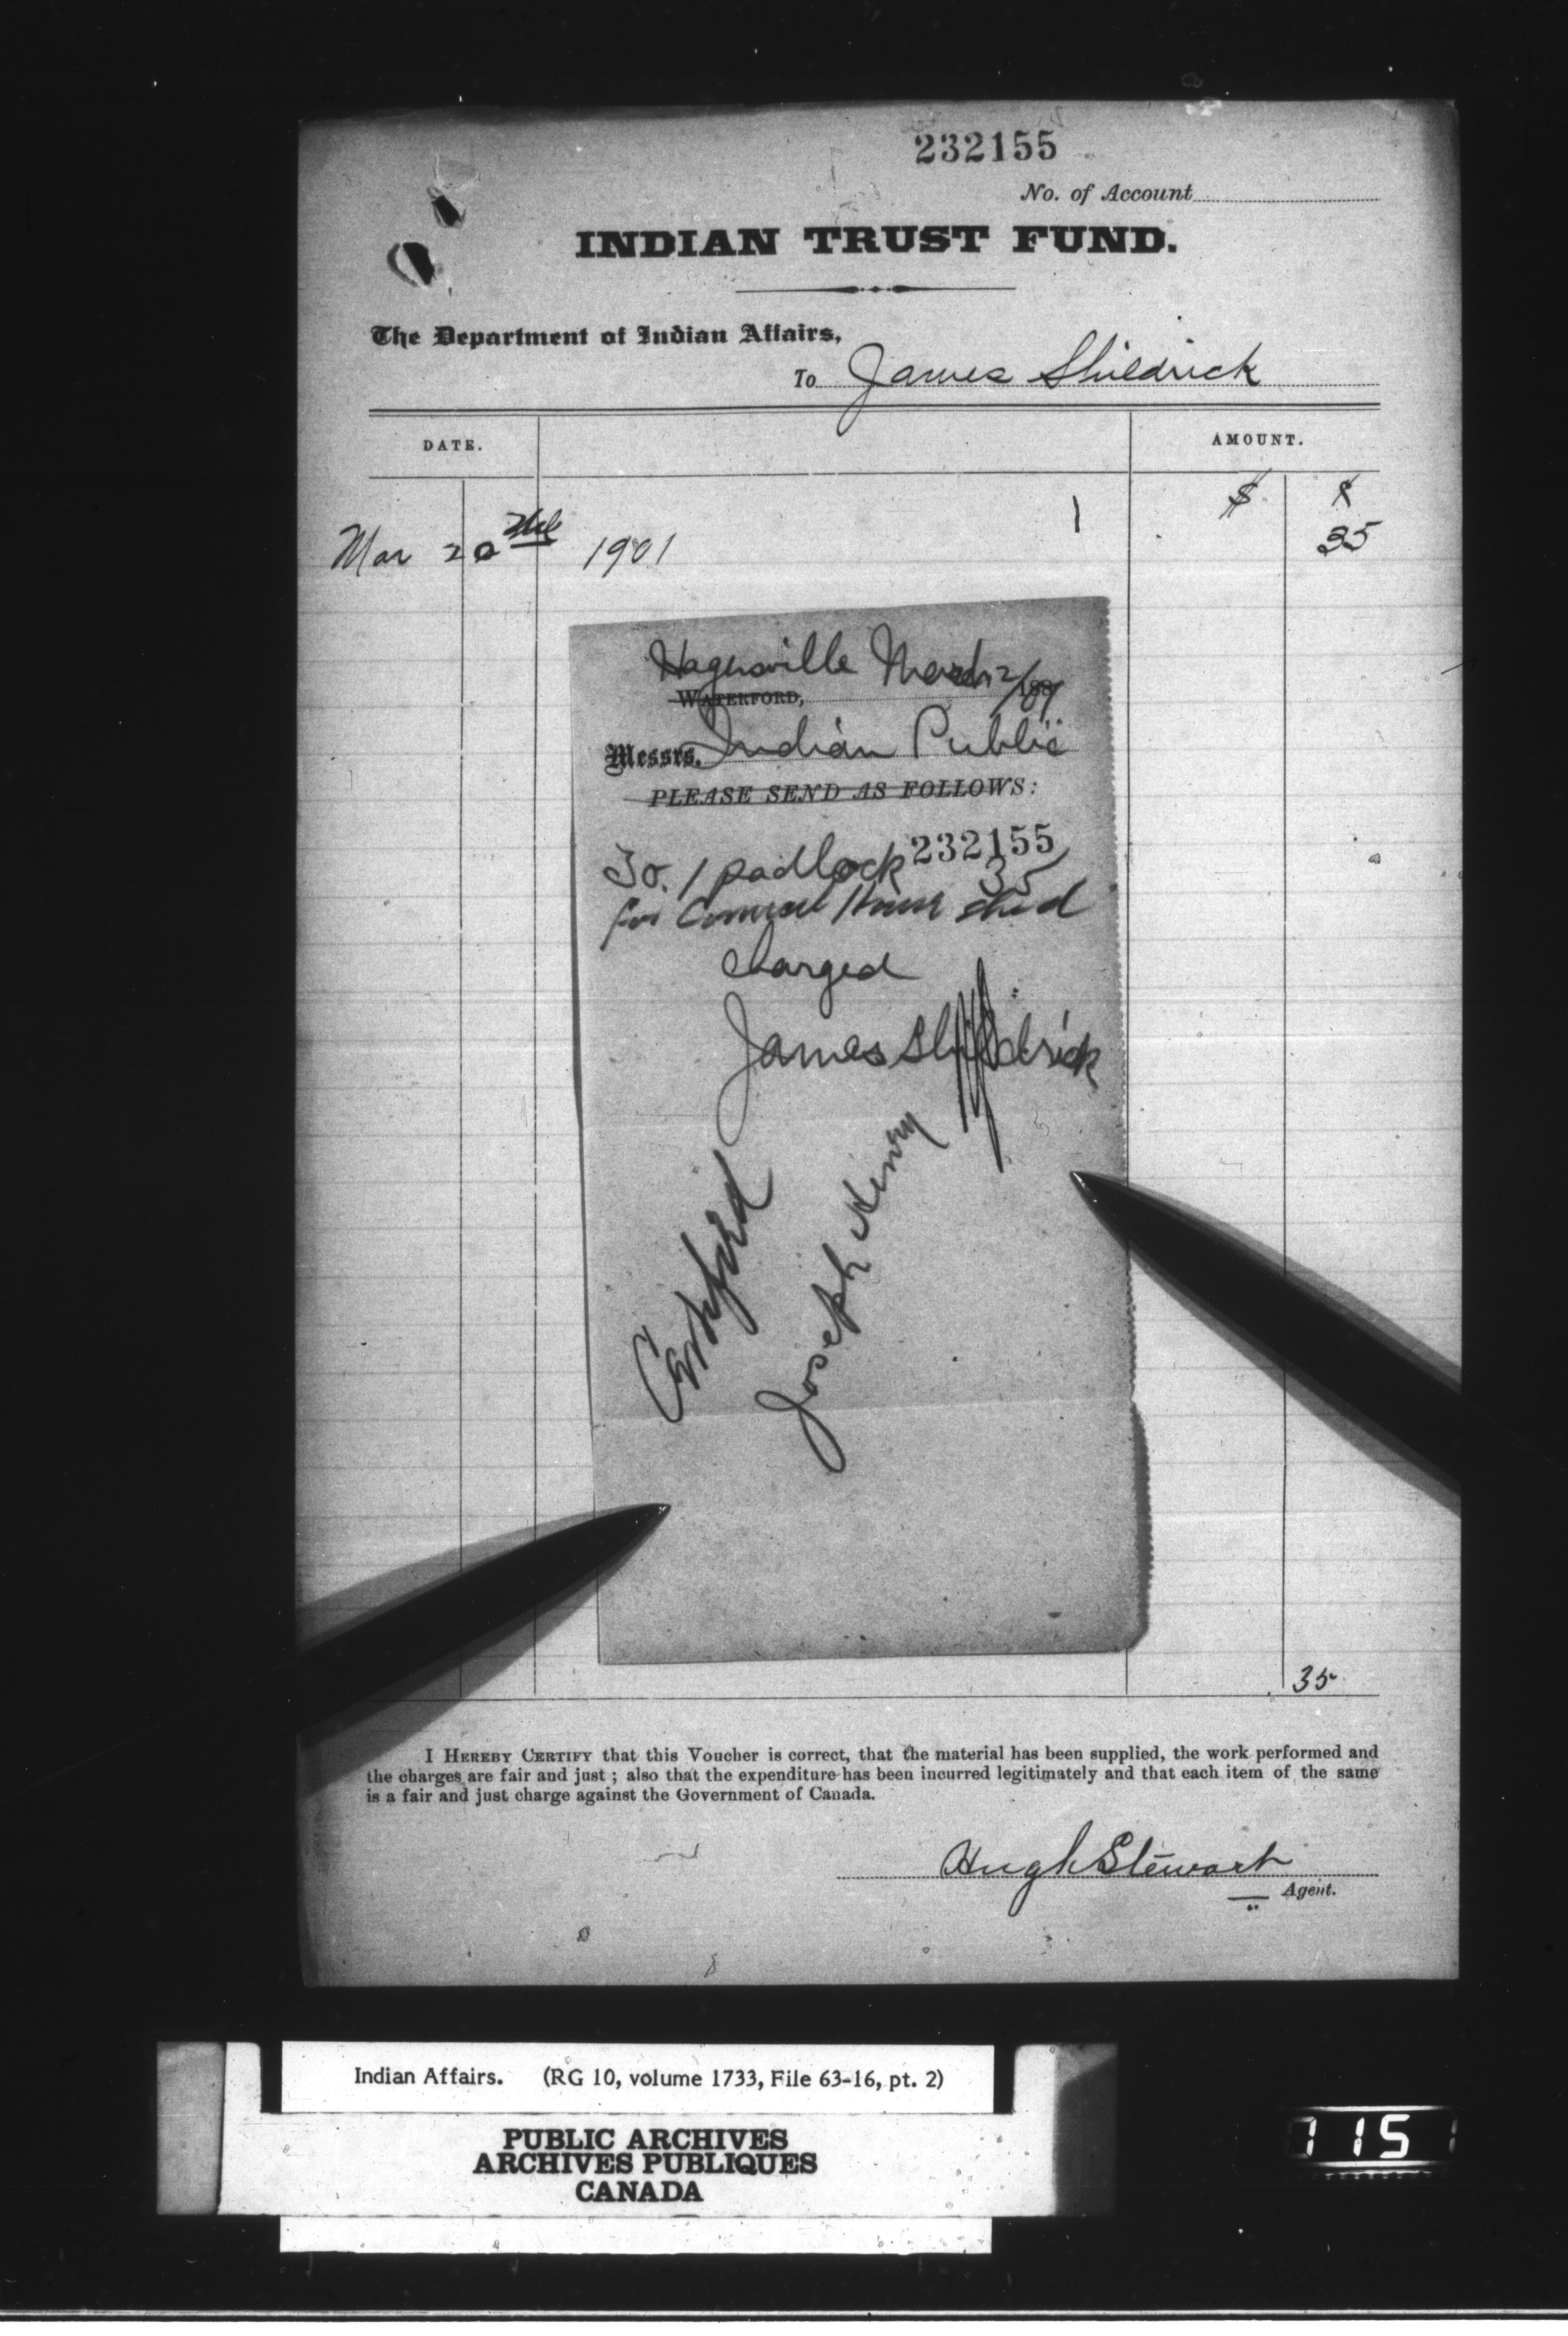 232155
No. of Account
INDIAN TRUST FUND.
The Department of Indian Affairs,
To James Shildrick
DATE. AMOUNT.
$
Mar 20th 1901 35
Hagersville March 12/
WATERFORD, 188
Messrs. Indian Public
PLEASE SEND AS FOLLOWS:
232155
To. 1 padlock 35
for Council House shed
Charged
James Shildrick
Certified
Joseph Henry
35
I HEREBY CERTIFY that this Voucher is correct, that the material has been supplied, the work performed and
the charges are fair and just ; also that the expenditure has been incurred legitimately and that each item of the same
is a fair and just charge against the Government of Canada.
Hugh Stewart
Agent.
Indian Affairs. (RG 10, volume 1733, File 63-16, pt. 2)
PUBLIC ARCHIVES
ARCHIVES PUBLIQUES
CANADA
115